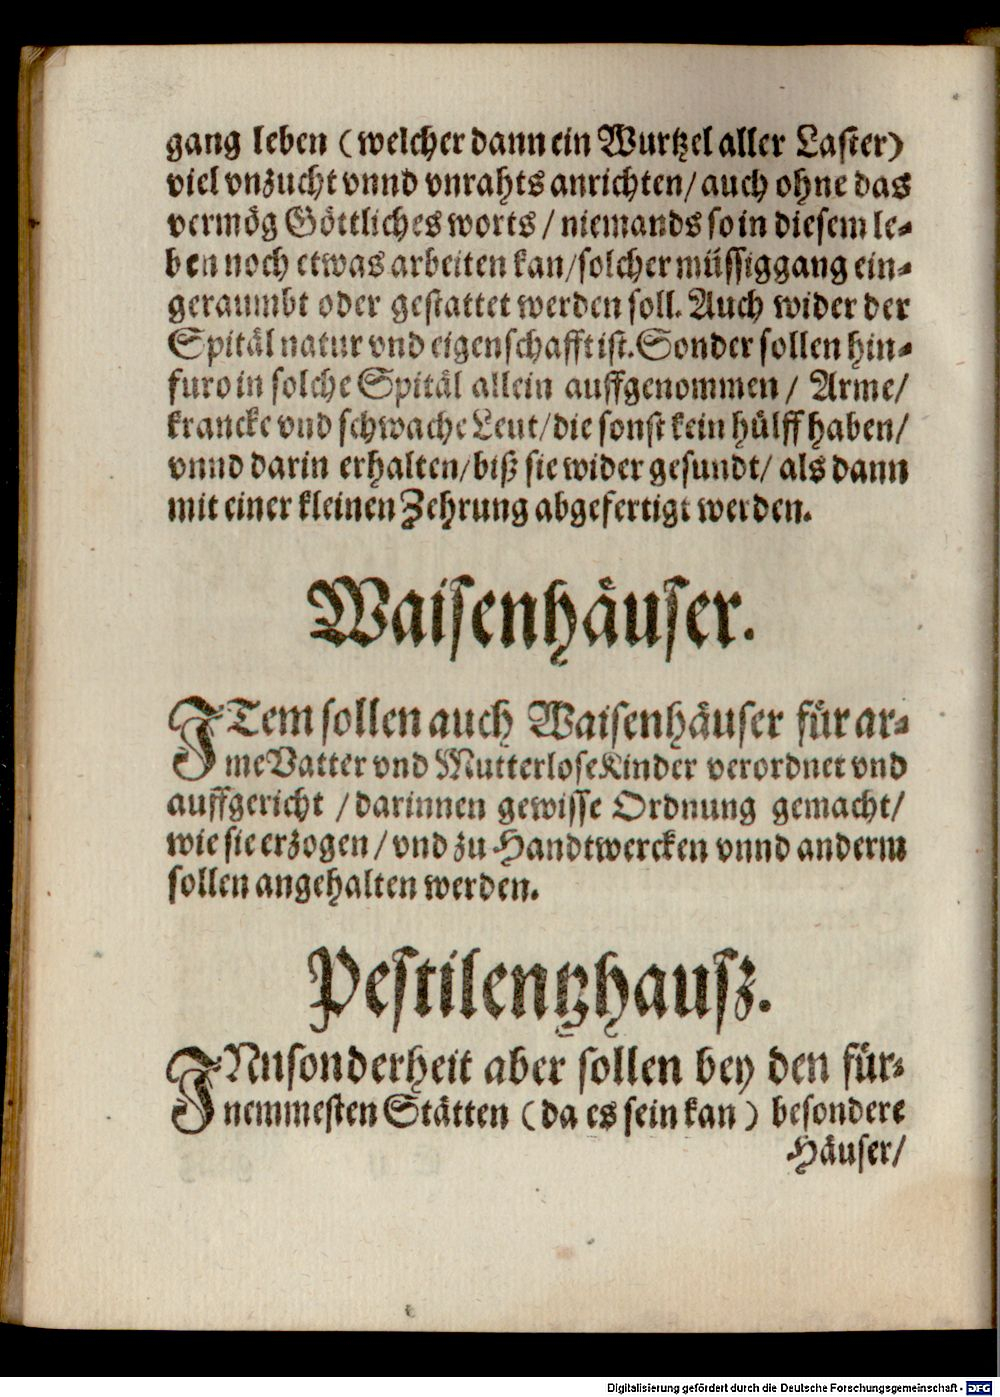 gang leben (welcher dann ein Wurtzel aller Laster)
viel vnzucht vnnd vnrahts anrichten/ auch ohne das
vermög Göttliches worts / niemands so in diesem le-
ben noch etwas arbeiten kan/solcher müssiggang ein-
geraumbt oder gestattet werden soll. Auch wider der
Spitäl natur vnd eigenschafft ist. Sonder sollen hin-
furo in solche Spitäl allein auffgenommen / Arme/
krancke vnd schwache Leut/die sonst kein hülff haben/
vnnd darin erhalten/biß sie wider gesundt/ als dann
mit einer kleinen Zehrung abgefertigt werden.
Waisenhäuser.
ITem sollen auch Waisenhäuser für ar-
me Vatter vnd Mutterlose Kinder verordnet vnd
auffgericht /darinnen gewisse Ordnung gemacht/
wie sie erzogen/ vnd zu Handtwercken vnnd anderm
sollen angehalten werden.
Pestilentzhausz.
INnsonderheit aber sollen bey den für-
nemmesten Stätten (da es sein kan) besondere
Häuser/
Digitalisierung gefördert durch die Deutsche Forschungsgemeinschaft - DFG